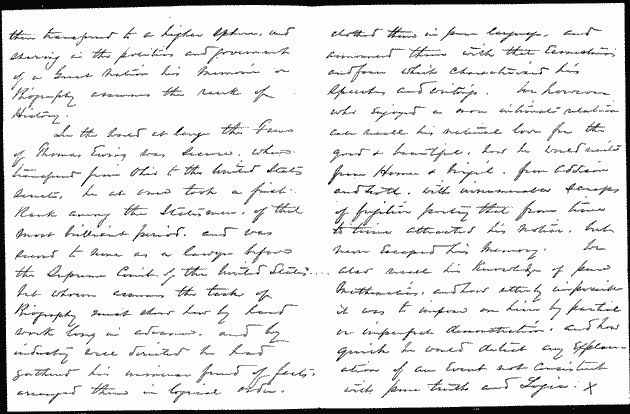 then transferred to a higher sphere, and
sharing in the politics and government
of a Great Nation his Memoir or
Biography assumes the rank of
History.
In the world at large the Fame
of Thomas Ewing was Secure, when
transferred from Ohio to the United States
Senate, he at once took a first
Rank among the Statesmen, of that
most brilliant period, and was
second to none as a lawyer before
the Supreme Court of the United States....
but whoever assumes the task of
Biography must show how by hard
work long in advance, and by
industry well directed he had
gathered his immense fund of facts,
arranged them in logical order,
clothed them in pure language, and
announced them with that earnestness
and force which characterized his
Speeches and writings. We however
who enjoyed a more intimate relation
can recall his natural love for the
good & beautiful, how he would recite
from Homer & Virgil, from Addison
and Scott, with innumerable scraps
of fugitive poetry that from time
to time attracted his notice, but
never escaped his Memory. We
also recall his Knowledge of pure
Mathematics, and how utterly impossible
it was to impose on him by partial
or imperfect demonstration, and how
quick he would detect any explan-
ation of an Event not consistent
with pure truth and Logic. X